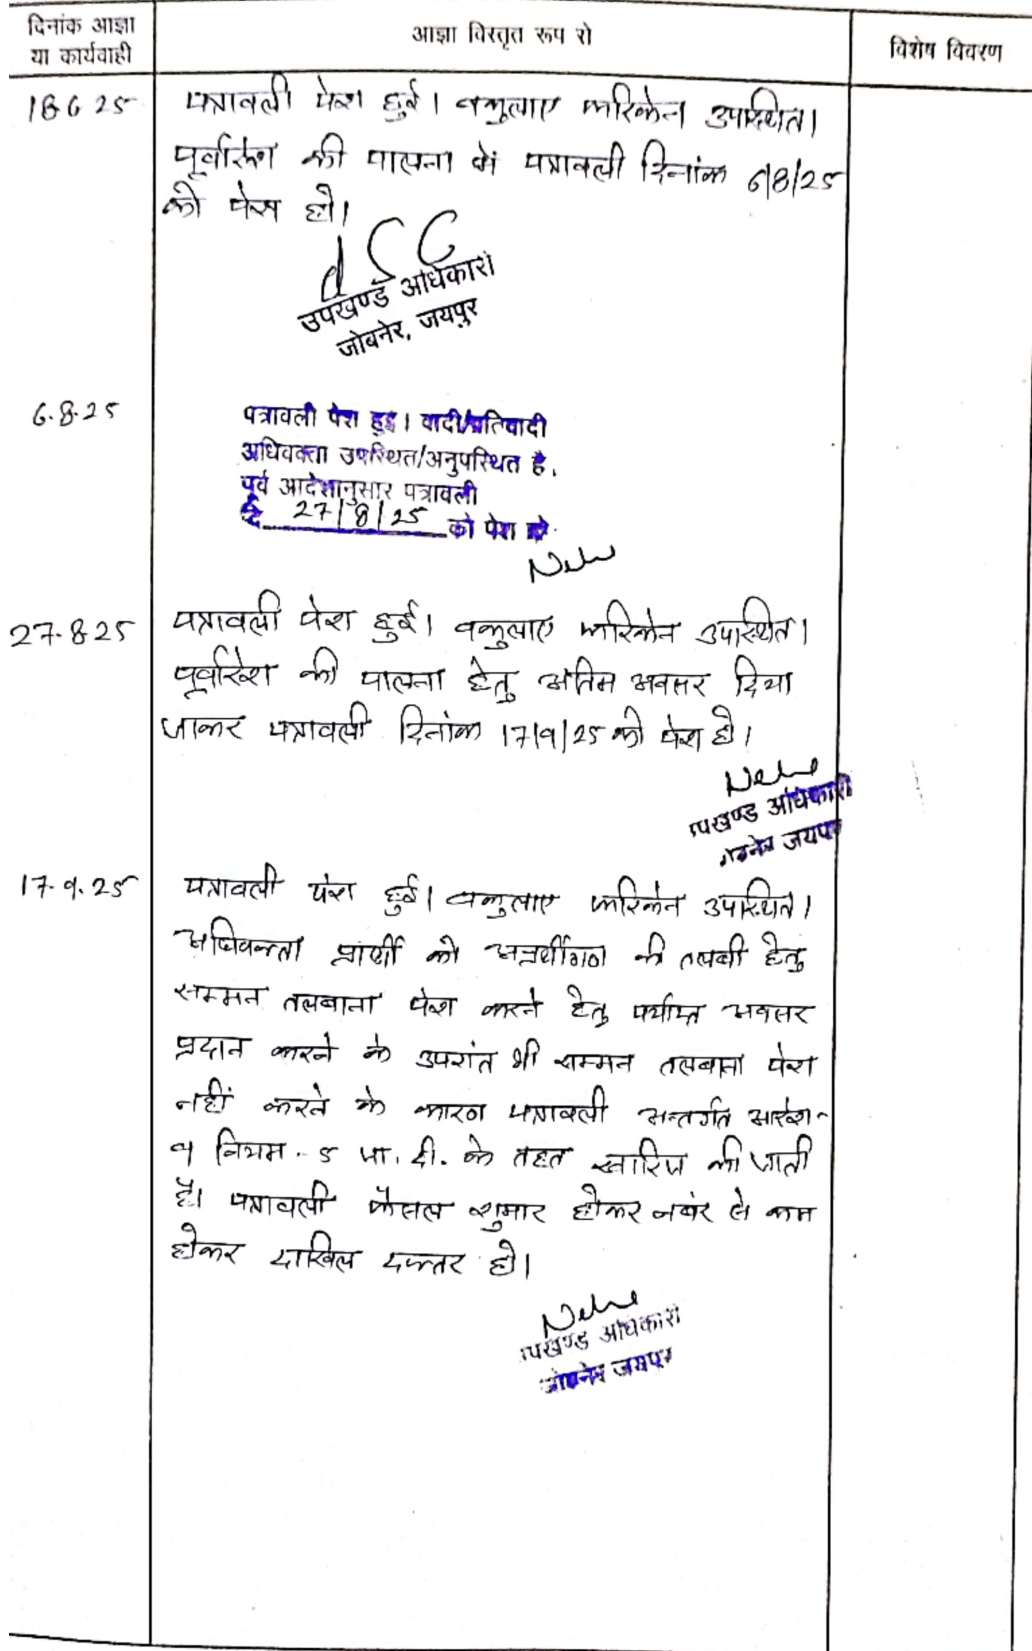 दिनांक आज्ञा
या कार्यवाही
आज्ञा विस्तृत रूप से
विशेष विवरण
18 6 25
पत्रावली पेश हुई। वकुलाए फरिकेन उपस्थित।
पूर्वादेश की पालना में पत्रावली दिनांक 6/8/25
को पेश हो।
उपखण्ड अधिकारी
जोबनेर, जयपुर
6.8.25
पत्रावली पेश हुई। वादी/प्रतिवादी
अधिवक्ता उपस्थित/अनुपस्थित है.
पूर्व आदेशानुसार पत्रावली
27/8/25 को पेश हो.
27.8 25
पत्रावली पेश हुई। वकुलाए फरिकेन उपस्थित।
पूर्वादेश की पालना हेतु अंतिम अवसर दिया
जाकर पत्रावली दिनांक 17/9/25 को पेश हो।
उपखण्ड अधिकारी
जोबनेर जयपुर
17.9.25
पत्रावली पेश हुई। वकुलाए फरिकेन उपस्थित।
अधिवक्ता प्रार्थी को अप्रार्थीगण की तलबी हेतु
सम्मन तलबाना पेश करने हेतु पर्याप्त अवसर
प्रदान करने के उपरांत भी सम्मन तलबाना पेश
नहीं करने के कारण पत्रावली अन्तर्गत आदेश-
9 नियम - 5 जा. दी. के तहत खारिज की जाती
है। पत्रावली फैसल शुमार होकर नबंर से कम
होकर दाखिल दफ्तर हो।
उपखण्ड अधिकारी
जोबनेर जयपुर